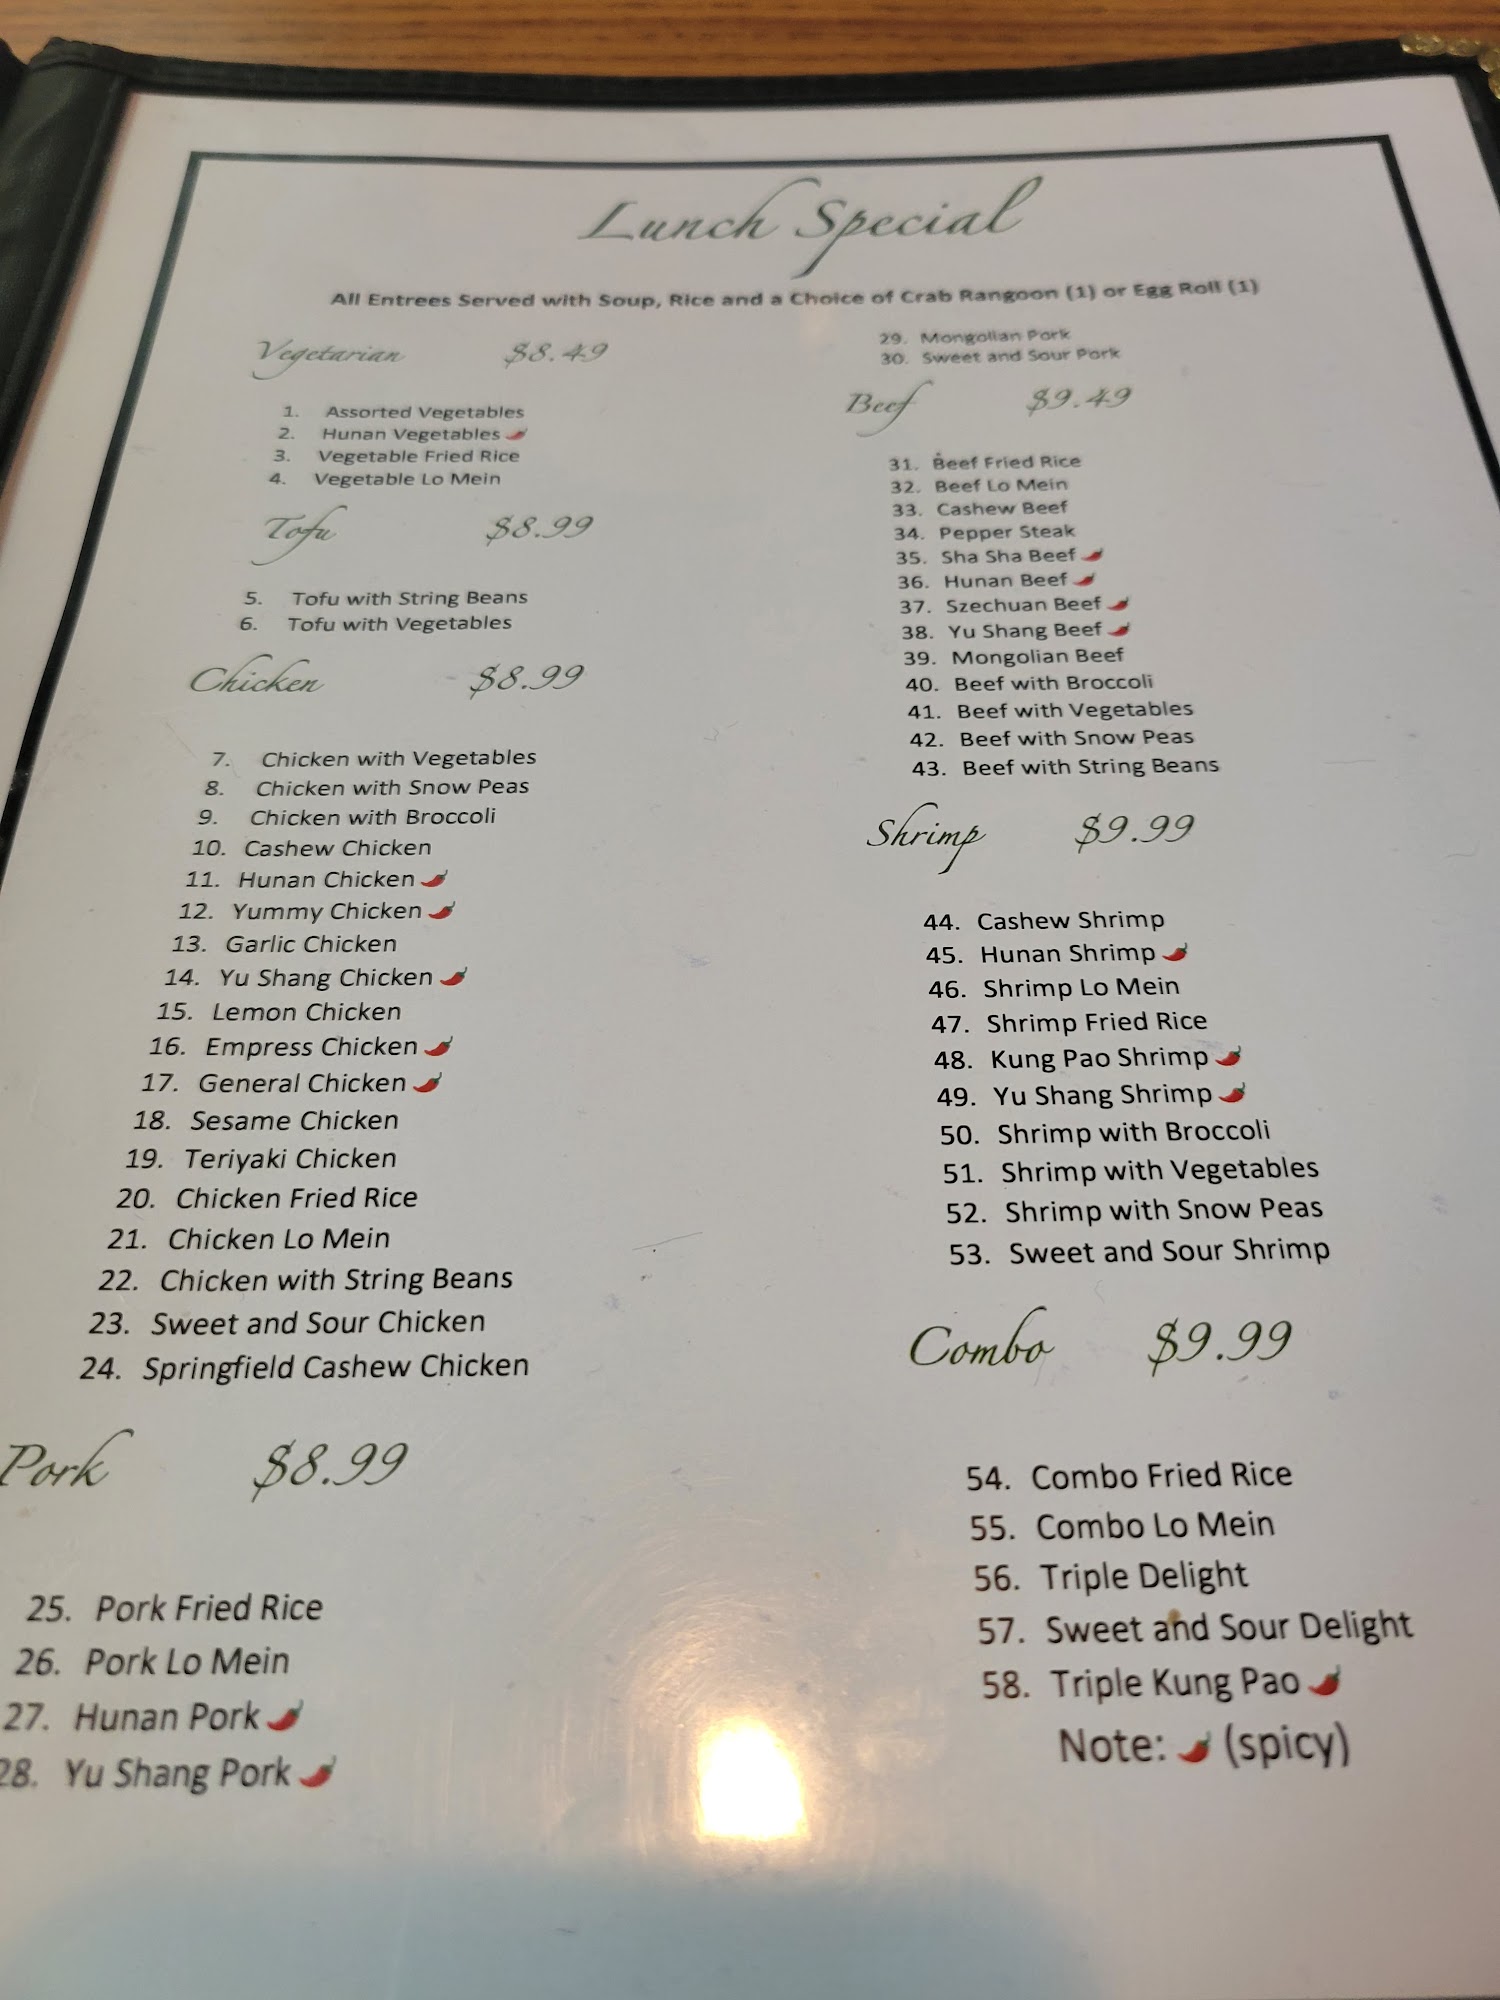 Lunch Special
All Entrees Served with Soup, Rice and a Choice of Crab Rangoon (1) or Egg Roll (1)
Vegetarian $8.49
1. Assorted Vegetables
2. Hunan Vegetables
3. Vegetable Fried Rice
4. Vegetable Lo Mein
Tofu $8.99
5. Tofu with String Beans
6. Tofu with Vegetables
Chicken $8.99
7. Chicken with Vegetables
8. Chicken with Snow Peas
9. Chicken with Broccoli
10. Cashew Chicken
11. Hunan Chicken
12. Yummy Chicken
13. Garlic Chicken
14. Yu Shang Chicken
15. Lemon Chicken
16. Empress Chicken
17. General Chicken
18. Sesame Chicken
19. Teriyaki Chicken
20. Chicken Fried Rice
21. Chicken Lo Mein
22. Chicken with String Beans
23. Sweet and Sour Chicken
24. Springfield Cashew Chicken
Pork $8.99
25. Pork Fried Rice
26. Pork Lo Mein
27. Hunan Pork
28. Yu Shang Pork
29. Mongolian Pork
30. Sweet and Sour Pork
Beef $9.49
31. Beef Fried Rice
32. Beef Lo Mein
33. Cashew Beef
34. Pepper Steak
35. Sha Sha Beef
36. Hunan Beef
37. Szechuan Beef
38. Yu Shang Beef
39. Mongolian Beef
40. Beef with Broccoli
41. Beef with Vegetables
42. Beef with Snow Peas
43. Beef with String Beans
Shrimp $9.99
44. Cashew Shrimp
45. Hunan Shrimp
46. Shrimp Lo Mein
47. Shrimp Fried Rice
48. Kung Pao Shrimp
49. Yu Shang Shrimp
50. Shrimp with Broccoli
51. Shrimp with Vegetables
52. Shrimp with Snow Peas
53. Sweet and Sour Shrimp
Combo $9.99
54. Combo Fried Rice
55. Combo Lo Mein
56. Triple Delight
57. Sweet and Sour Delight
58. Triple Kung Pao
Note: (spicy)